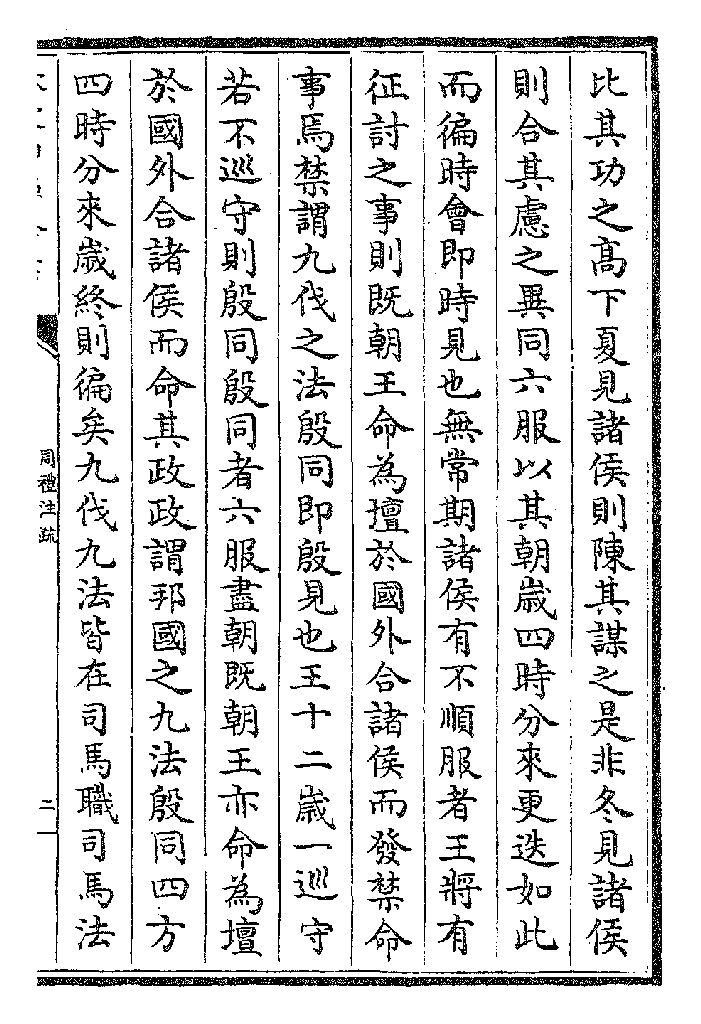 比其功之髙下夏見諸侯則陳其謀之是非冬見諸侯
則合其慮之異同六服以其朝歳四時分來更迭如此
而徧時會即時見也無常期諸侯有不順服者王將有
征討之事則既朝王命為壇於國外合諸侯而發禁命
事焉禁謂九伐之法殷同即殷見也王十二歳一巡守
若不巡守則殷同殷同者六服盡朝既朝王亦命為壇
於國外合諸侯而命其政政謂邦國之九法殷同四方
四時分來歳終則徧矣九伐九法皆在司馬職司馬法
周禮注疏
二